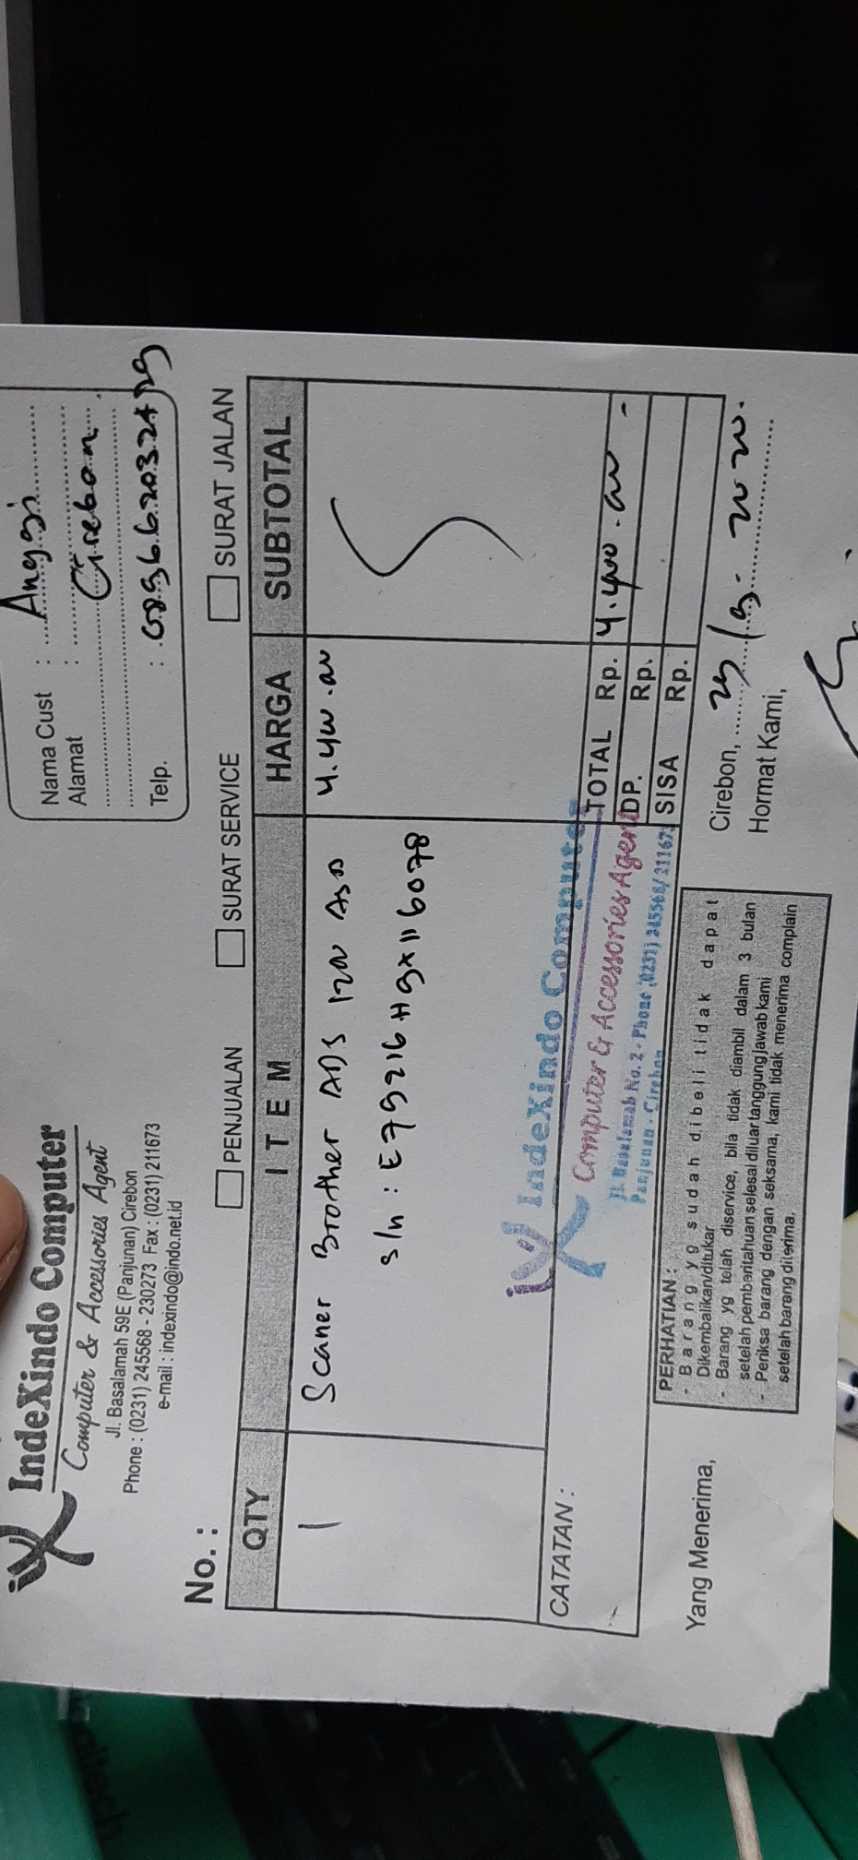 IndeXindo Computer
Computer & Accessories Agent
Jl. Basalamah 59E (Panjunan) Cirebon
Phone : (0231) 245568 - 230273 Fax : (0231) 211673
e-mail : indexindo@indo.net.id
Nama Cust : Anggi
Alamat : Cirebon
Telp. :
No. :
PENJUALAN SURAT SERVICE SURAT JALAN
QTY ITEM HARGA SUBTOTAL
1 Scaner Brother ADS
s/n : E79216H9X116078
CATATAN :
IndeXindo Computer
Computer & Accessories Agent
Jl. Basalamah No. 2 - Phone (0231) 245568/211673
Panjunan - Cirebon
TOTAL Rp.
DP. Rp.
SISA Rp.
Yang Menerima,
PERHATIAN :
- Barang yg sudah dibeli tidak dapat
Dikembalikan/ditukar
- Barang yg telah diservice, bila tidak diambil dalam 3 bulan
setelah pemberitahuan selesai diluar tanggung jawab kami
- Periksa barang dengan seksama, kami tidak menerima complain
setelah barang diterima.
Cirebon,
Hormat Kami,